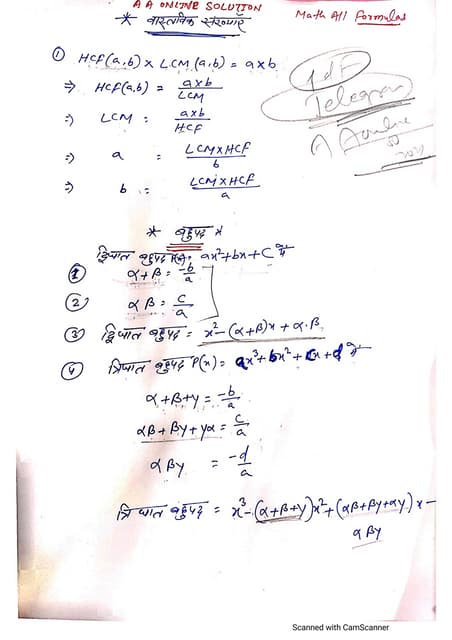 A A ONLINE SOLUTION
* वास्तविक संख्याएँ
Math All Formulas
① HCf(a,b) × LCM(a,b) = a×b
⇒ HCf(a,b) = a×b/LCM
⇒ LCM = a×b/HCF
⇒ a = LCM×HCF/b
⇒ b = LCM×HCF/a
Pdf
Telegram
* बहुपद *
द्विघात बहुपद P(x) = ax²+bx+C
① α+β = -b/a
② αβ = c/a
③ द्विघात बहुपद = x²-(α+β)x+α.β
④ त्रिघात बहुपद P(x) = ax³+bx²+cx+d
α+β+γ = -b/a
αβ+βγ+γα = c/a
αβγ = -d/a
त्रिघात बहुपद = x³-(α+β+γ)x²+(αβ+βγ+αγ)x-
αβγ
Scanned with CamScanner